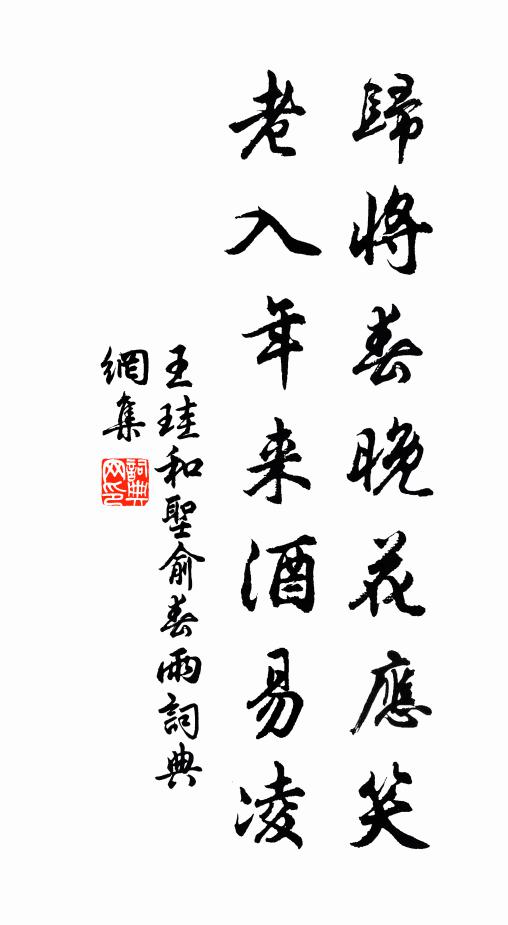 歸將春晚花應笑
老入年来酒易凌
王珪和聖俞春雨詞典
網集
詞典
网印